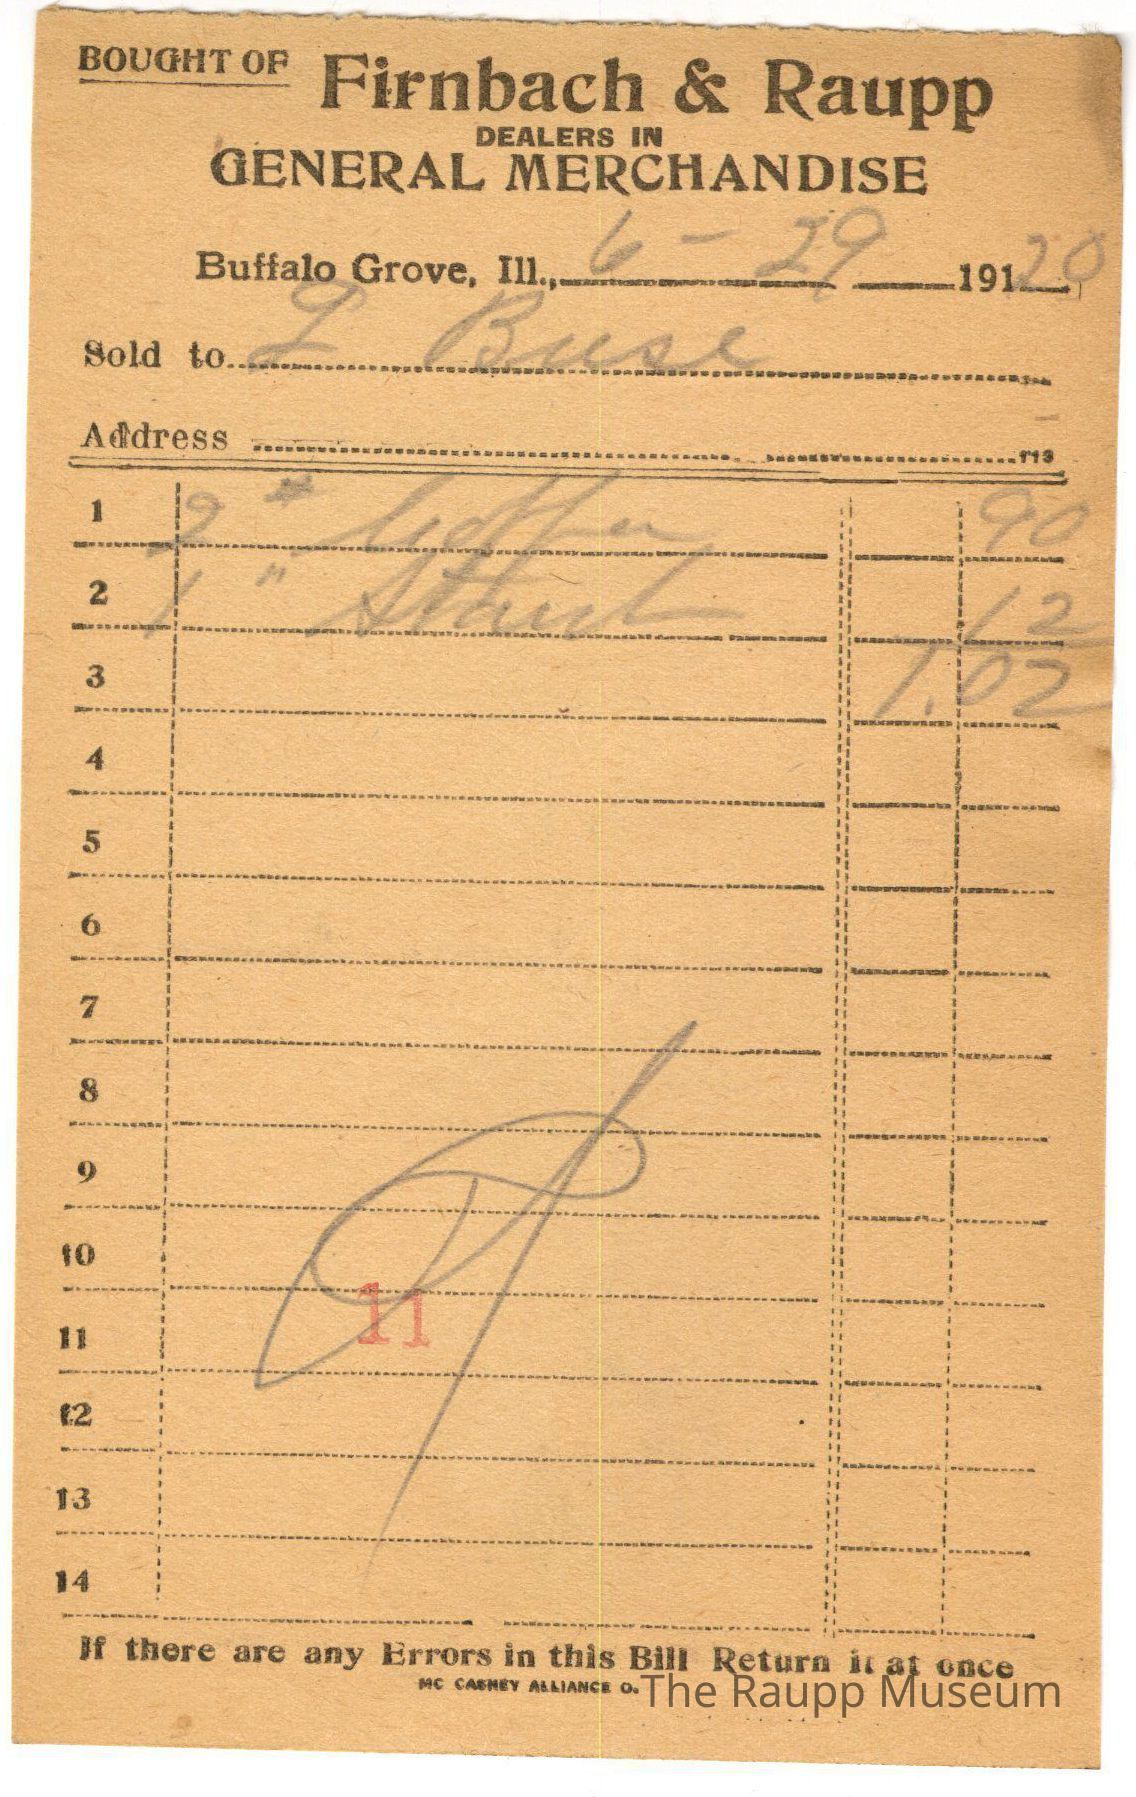 BOUGHT OF Firnbach & Raupp
DEALERS IN
GENERAL MERCHANDISE
Buffalo Grove, Ill., 6 - 29 191 20
Sold to L Buse
Address
1 2 # Coffee 90
2 1 " Starch 12
3 1.02
4
5
6
7
8
9
10
11
11
12
13
14
If there are any Errors in this Bill Return it at once
MC CASKEY ALLIANCE O.
The Raupp Museum